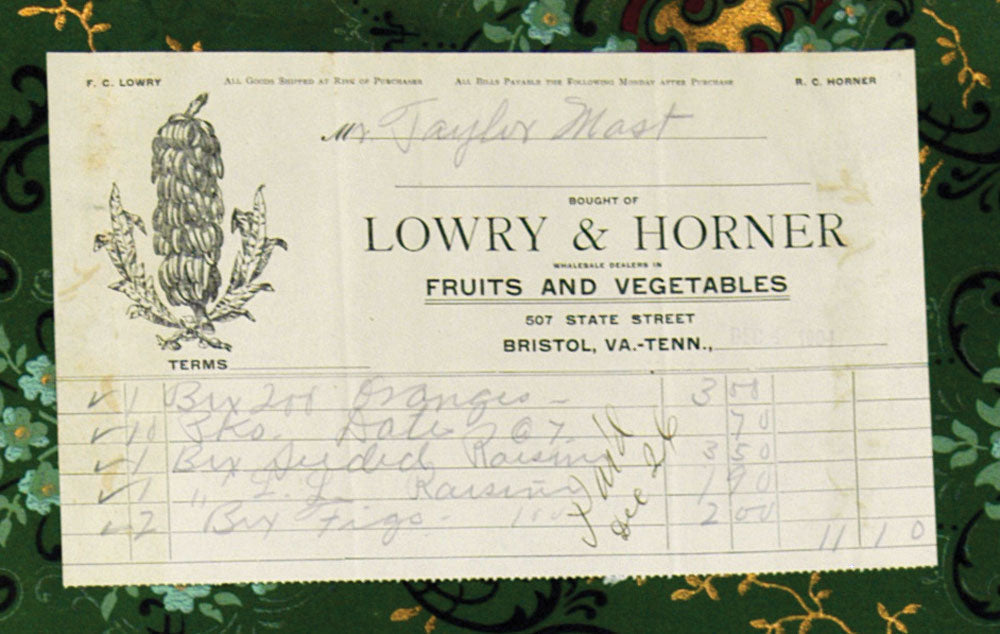 F. C. LOWRY ALL GOODS SHIPPED AT RISK OF PURCHASER ALL BILLS PAYABLE THE FOLLOWING MONDAY AFTER PURCHASE R. C. HORNER
Mr. Taylor Mast
BOUGHT OF
LOWRY & HORNER
WHOLESALE DEALERS IN
FRUITS AND VEGETABLES
507 STATE STREET
BRISTOL, VA.-TENN., DEC
TERMS
✓ 1 Bx 200 Oranges - 3 00
✓ 10 Pks. Date 7 70
✓ 1 Bx Seeded Raisins 3 50
✓ 1 " L. L. Raisins 1 90
✓ 2 Bx Figs - 100 2 00
11 10
Paid
Dec 26